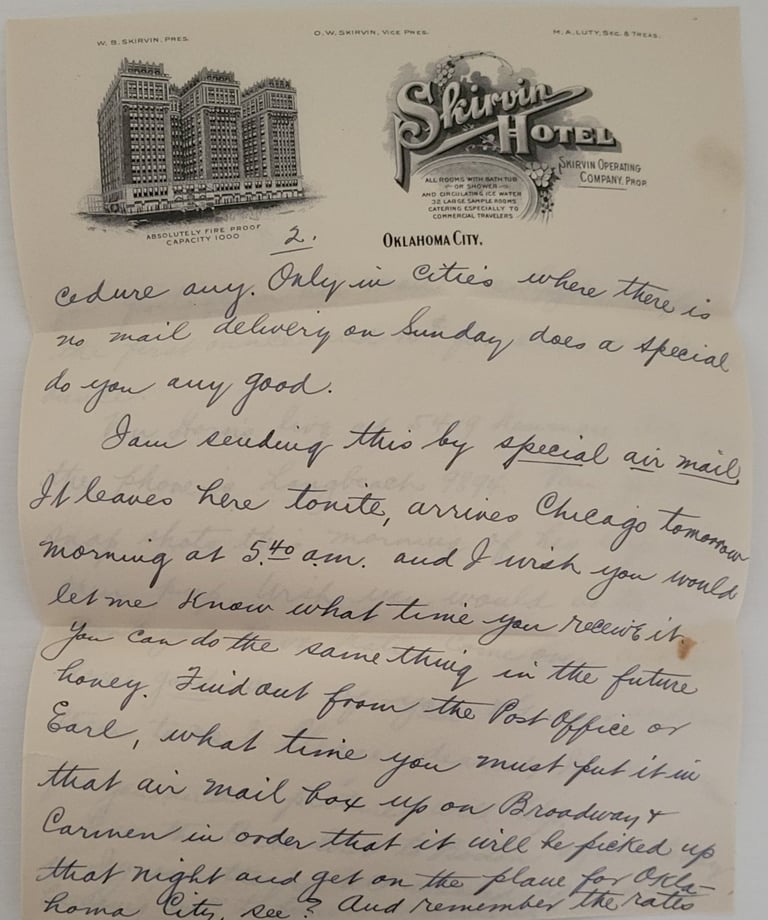 W. B. SKIRVIN, PRES.
O. W. SKIRVIN, VICE PRES.
M. A. LUTY, SEC. & TREAS.
Skirvin
HOTEL
SKIRVIN OPERATING
COMPANY, PROP.
ALL ROOMS WITH BATH TUB
OR SHOWER
AND CIRCULATING ICE WATER
32 LARGE SAMPLE ROOMS
CATERING ESPECIALLY TO
COMMERCIAL TRAVELERS
ABSOLUTELY FIRE PROOF
CAPACITY 1000
OKLAHOMA CITY,
2.
cedure any. Only in cities where there is
no mail delivery on Sunday does a special
do you any good.
I am sending this by special air mail.
It leaves here tonite, arrives Chicago tomorrow
morning at 5.40 a.m. and I wish you would
let me know what time you receive it.
You can do the same thing in the future
honey. Find out from the Post Office or
Earl, what time you must put it in
that air mail box up on Broadway &
Carmen in order that it will be picked up
that night and get on the plane for Okla-
homa City, see? And remember the rates